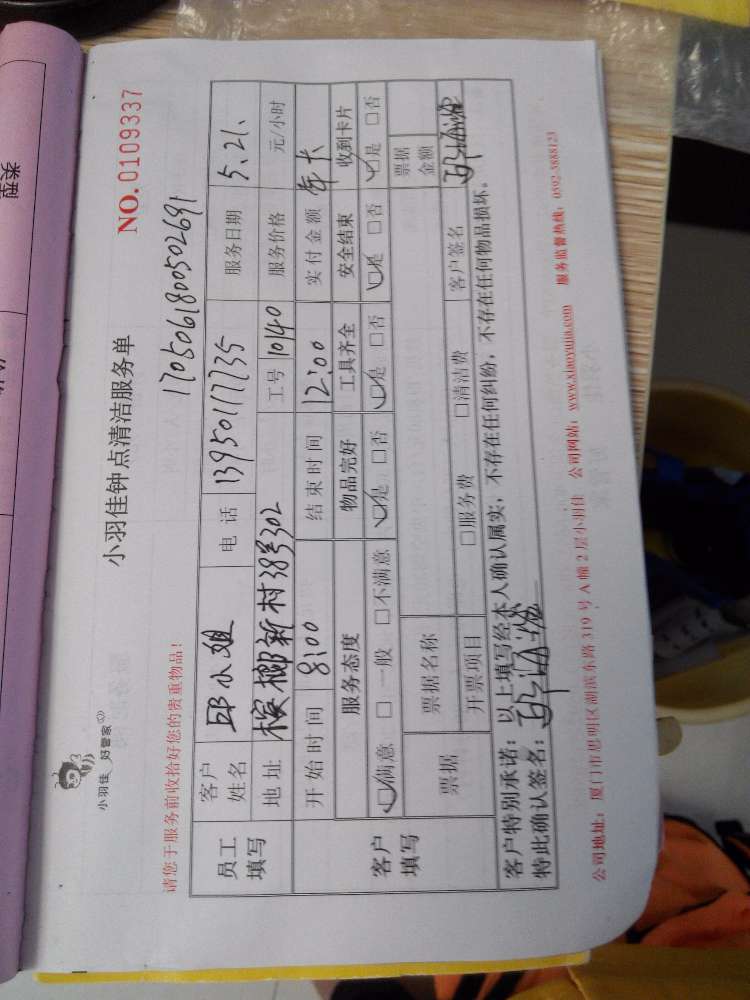 小羽佳 好管家
小羽佳钟点清洁服务单
NO.0109337
请您于服务前收拾好您的贵重物品!
1705061800502691
员工填写 客户姓名 邱小姐 电话 13950117735 服务日期 5.21.
地址 槟榔新村38号302 工号 10140 服务价格 元/小时
客户填写 开始时间 8:00 结束时间 12:00 实付金额 年卡
服务态度 物品完好 工具齐全 安全结束 收到卡片
☑满意 □一般 □不满意 ☑是 □否 ☑是 □否 ☑是 □否 ☑是 □否
票据 票据名称 票据金额
开票项目 □服务费 □清洁费 客户签名
客户特别承诺:以上填写经本人确认属实,不存在任何纠纷,不存在任何物品损坏。
特此确认签名:
公司地址:厦门市思明区湖滨东路319号A幢2层小羽佳 公司网站:www.xiaoyujia.com 服务监督热线:0592-3888123
类型